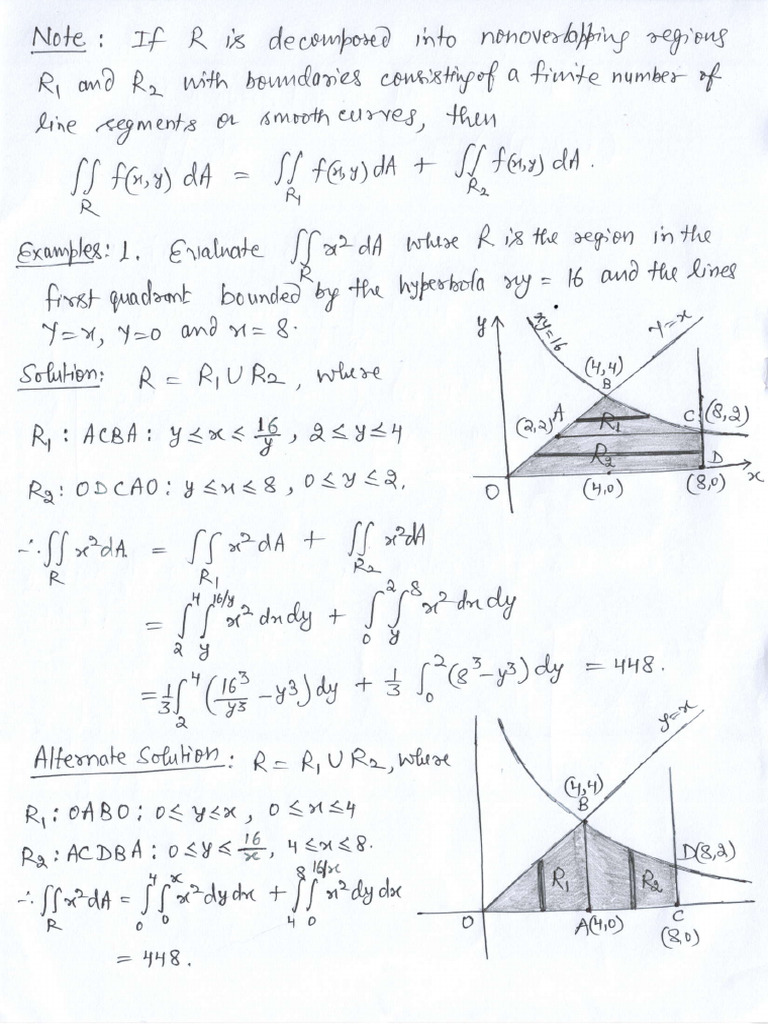 Note: If R is decomposed into nonoverlapping regions
R₁ and R₂ with boundaries consisting of a finite number of
line segments or smooth curves, then
∬_R f(x,y) dA = ∬_R₁ f(x,y) dA + ∬_R₂ f(x,y) dA.
Examples: 1. Evaluate ∬_R x² dA where R is the region in the
first quadrant bounded by the hyperbola xy = 16 and the lines
y=x, y=0 and x=8.
Solution: R = R₁ ∪ R₂, where
R₁: ACBA: y ≤ x ≤ 16/y, 2 ≤ y ≤ 4
R₂: ODCAO: y ≤ x ≤ 8, 0 ≤ y ≤ 2.
∴ ∬_R x² dA = ∬_R₁ x² dA + ∬_R₂ x² dA
= ∫₂⁴ ∫_y^{16/y} x² dx dy + ∫₀² ∫_y^8 x² dx dy
= 1/3 ∫₂⁴ (16³/y³ − y³) dy + 1/3 ∫₀² (8³ − y³) dy = 448.
y
xy=16
y=x
(4,4)
B
(2,2) A
R₁
C (8,2)
R₂
D
x
O
(4,0)
(8,0)
Alternate Solution: R = R₁ ∪ R₂, where
R₁: OABO: 0 ≤ y ≤ x, 0 ≤ x ≤ 4
R₂: ACDBA: 0 ≤ y ≤ 16/x, 4 ≤ x ≤ 8.
∴ ∬_R x² dA = ∫₀⁴ ∫₀^x x² dy dx + ∫₄⁸ ∫₀^{16/x} x² dy dx
= 448.
y=x
(4,4)
B
D(8,2)
R₁
R₂
O
A(4,0)
C
(8,0)